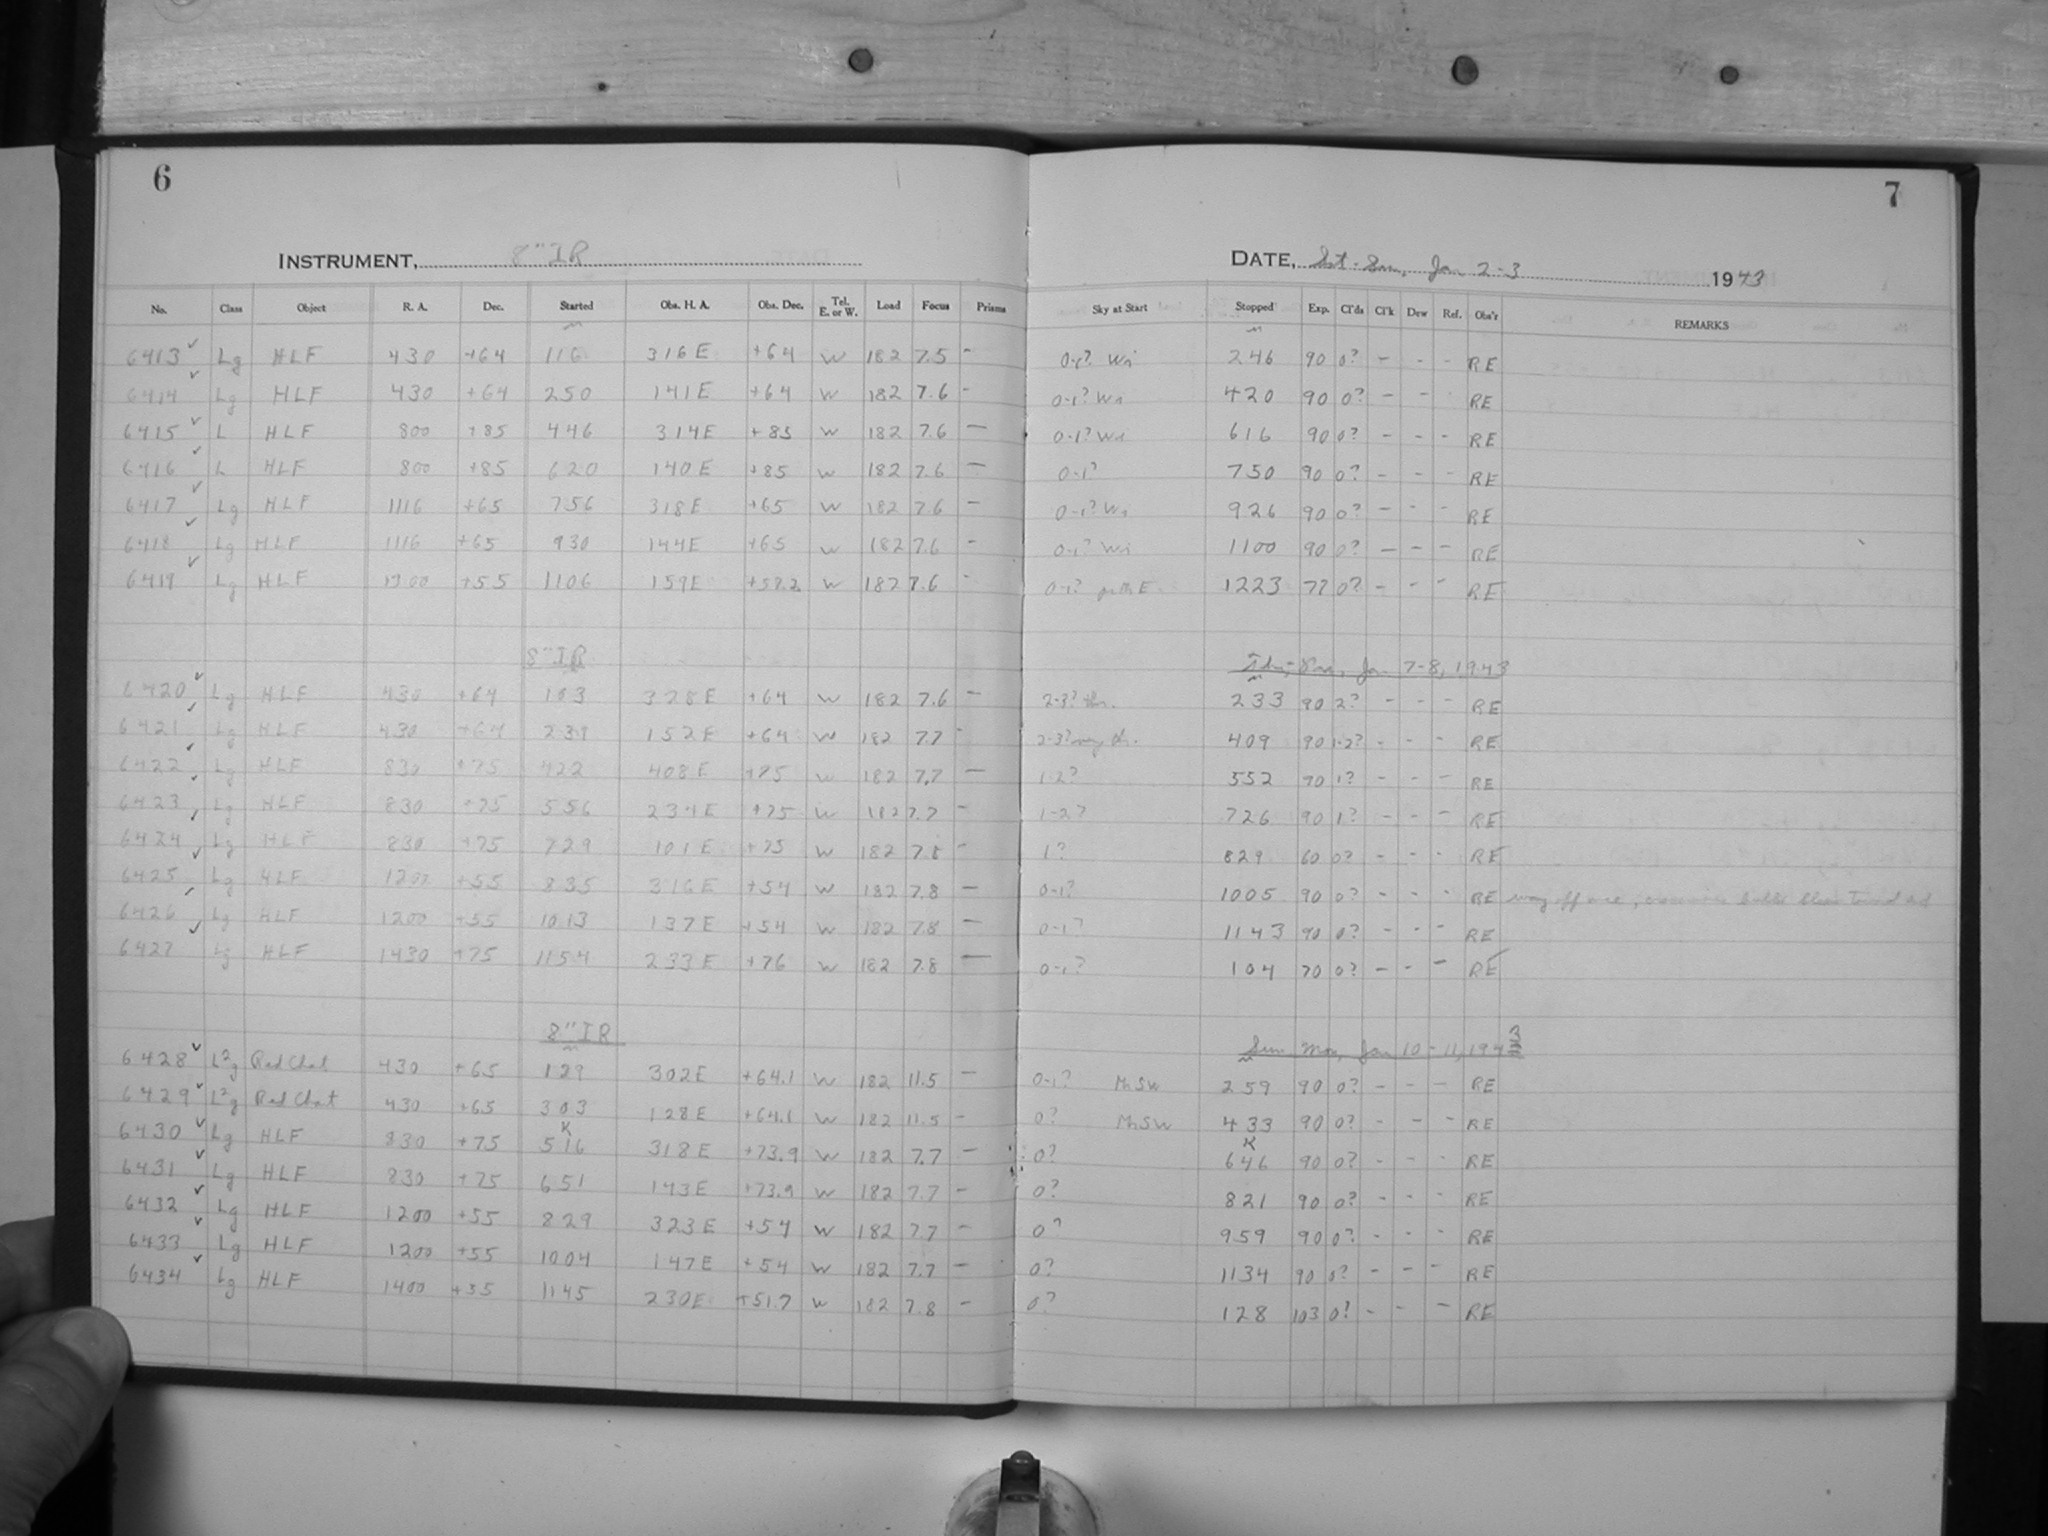 6
7
INSTRUMENT, 8" IR
DATE, Sat-Sun, Jan 2-3 1943
No. Class Object R. A. Dec. Started Obs. H. A. Obs. Dec. Tel. E. or W. Load Focus Prisms Sky at Start Stopped Exp. Cl'ds Cl'k Dew Ref. Obs'r REMARKS
6413 ✓ Lg HLF 430 +64 116 316E +64 W 182 7.5 - 0-1? Wi 246 90 0? - - - RE
6414 ✓ Lg HLF 430 +64 250 141E +64 W 182 7.6 - 0-1? Wi 420 90 0? - - - RE
6415 ✓ L HLF 800 +85 446 314E +85 W 182 7.6 - 0-1? Wi 616 90 0? - - - RE
6416 ✓ L HLF 800 +85 620 140E +85 W 182 7.6 - 0-1? 750 90 0? - - - RE
6417 ✓ Lg HLF 1116 +65 756 318E +65 W 182 7.6 - 0-1? Wi 926 90 0? - - - RE
6418 ✓ Lg HLF 1116 +65 930 144E +65 W 182 7.6 - 0-1? Wi 1100 90 0? - - - RE
6419 ✓ Lg HLF 1300 +55 1106 159E W 182 7.6 - 0-1? 1223 77 0? - - - RE
8" IR Jan 7-8, 1943
6420 ✓ Lg HLF 430 +64 103 328E +64 W 182 7.6 - 2-3? th. 233 90 2? - - - RE
6421 ✓ Lg HLF 430 +64 239 152E +64 W 182 7.7 - 2-3? 409 90 1-2? - - - RE
6422 ✓ Lg HLF 830 +75 422 408E +75 W 182 7.7 - 1-2? 552 70 1? - - - RE
6423 ✓ Lg HLF 830 +75 556 234E +75 W 182 7.7 - 1-2? 726 90 1? - - - RE
6424 ✓ Lg HLF 830 +75 729 101E +75 W 182 7.8 - 1? 829 60 0? - - - RE
6425 ✓ Lg HLF 1200 +55 835 316E +54 W 182 7.8 - 0-1? 1005 90 0? - - - RE way off
6426 ✓ Lg HLF 1200 +55 1013 137E +54 W 182 7.8 - 0-1? 1143 90 0? - - - RE
6427 Lg HLF 1430 +75 1154 233E +76 W 182 7.8 - 0-1? 104 70 0? - - - RE
8" IR Sun Mon, Jan 10-11, 1943
6428 ✓ L²g Red Chat 430 +65 129 302E +64.1 W 182 11.5 - 0-1? Th SW 259 90 0? - - - RE
6429 ✓ L²g Red Chat 430 +65 303 128E +64.1 W 182 11.5 - 0? Th SW 433 90 0? - - - RE
6430 ✓ Lg HLF 830 +75 516 318E +73.9 W 182 7.7 - 0? 646 90 0? - - - RE
6431 ✓ Lg HLF 830 +75 651 143E +73.9 W 182 7.7 - 0? 821 90 0? - - - RE
6432 ✓ Lg HLF 1200 +55 829 323E +54 W 182 7.7 - 0? 959 90 0? - - - RE
6433 ✓ Lg HLF 1200 +55 1004 147E +54 W 182 7.7 - 0? 1134 90 0? - - - RE
6434 ✓ Lg HLF 1400 1145 230E +51.7 W 182 7.8 - 0? 128 103 0? - - - RE